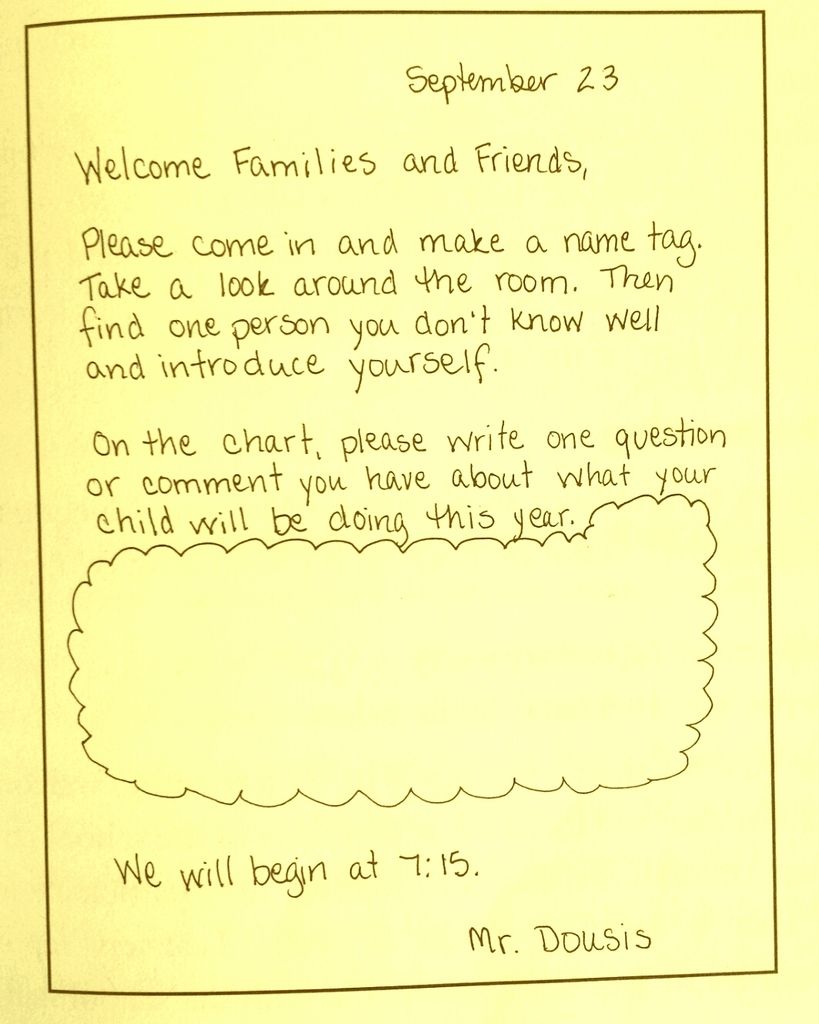 September 23
Welcome Families and Friends,
Please come in and make a name tag.
Take a look around the room. Then
find one person you don't know well
and introduce yourself.
On the chart, please write one question
or comment you have about what your
child will be doing this year.
We will begin at 7:15.
Mr. Dousis